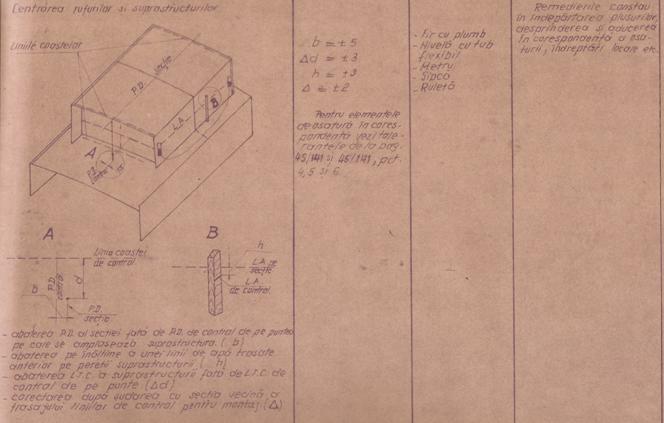 Centrarea rufurilor si suprastructurilor
Liniile coastelor
P.D. secție
L.A.
B
A
P.D.
control
A
B
Linia coastei
de control
P.D.
control
d
b
P.D.
secție
h
L.A. pe
secție
L.A.
de control
- abaterea P.D. al secției față de P.D. de control de pe puntea
pe care se amplasează suprastructura. (b)
- abaterea pe înălțime a unei linii de apă trasate
anterior pe pereții suprastructurii. (h)
- abaterea L.T.C. a suprastructurii față de L.T.C. de
control de pe punte (Δd)
- corectarea după sudarea cu secția vecină a
trasajului liniilor de control pentru montaj (Δ)
b = ±5
Δd = ±3
h = ±3
Δ = ±2
Pentru elementele
de osatură în cores-
pondență vezi tole-
rantele de la pag.
45/141 și 46/141, pct.
4, 5 și 6.
- Fir cu plumb
- Nivelă cu tub
flexibil
- Metru
- Sipcă
- Ruletă
Remedierile constau
în îndepărtarea plusurilor,
desprinderea și aducerea
în corespondență a osa-
turii, îndreptări locale etc.